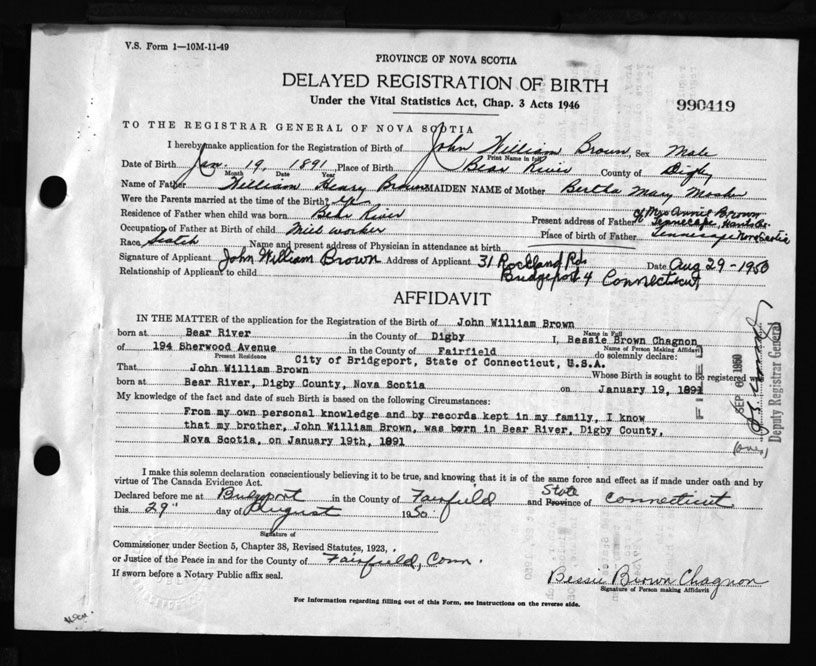 V.S. Form 1—10M-11-49
PROVINCE OF NOVA SCOTIA
DELAYED REGISTRATION OF BIRTH
Under the Vital Statistics Act, Chap. 3 Acts 1946
990419
TO THE REGISTRAR GENERAL OF NOVA SCOTIA
I hereby make application for the Registration of Birth of John William Brown, Sex Male
Print Name in full
Date of Birth Jan. 19, 1891 Place of Birth Bear River County of Digby
Month Date Year
Name of Father William Henry Brown MAIDEN NAME of Mother Bertha Mary Mosher
Were the Parents married at time of the Birth? yes
Residence of Father when child was born Bear River Present address of Father % Mrs Annie Brown
Tennecape, Hants Co.
Occupation of Father at Birth of child Mill worker Place of birth of Father Tennecape Nova Scotia
Race Scotch Name and present address of Physician in attendance at birth
Signature of Applicant John William Brown Address of Applicant 31 Rockland Rd. Date Aug 29-1950
Relationship of Applicant to child Bridgeport 4 Connecticut
AFFIDAVIT
IN THE MATTER of the application for the Registration of the Birth of John William Brown
Name in Full
born at Bear River in the County of Digby I, Bessie Brown Chagnon
Name of Person Making Affidavit
of 194 Sherwood Avenue in the County of Fairfield do solemnly declare:
Present Residence
City of Bridgeport, State of Connecticut, U.S.A.
That John William Brown Whose Birth is sought to be registered was
born at Bear River, Digby County, Nova Scotia on January 19, 1891
My knowledge of the fact and date of such Birth is based on the following Circumstances:
From my own personal knowledge and by records kept in my family, I know
that my brother, John William Brown, was born in Bear River, Digby County,
Nova Scotia, on January 19th, 1891
SEP 6 1950
Deputy Registrar General
I make this solemn declaration conscientiously believing it to be true, and knowing that it is of the same force and effect as if made under oath and by
virtue of The Canada Evidence Act.
Declared before me at Bridgeport in the County of Fairfield and Province of State Connecticut
this 29" day of August 1950
Signature of
Commissioner under Section 5, Chapter 38, Revised Statutes, 1923,
or Justice of the Peace in and for the County of Fairfield, Conn.
If sworn before a Notary Public affix seal.
Bessie Brown Chagnon
Signature of Person making Affidavit
For Information regarding filling out of this Form, see instructions on the reverse side.